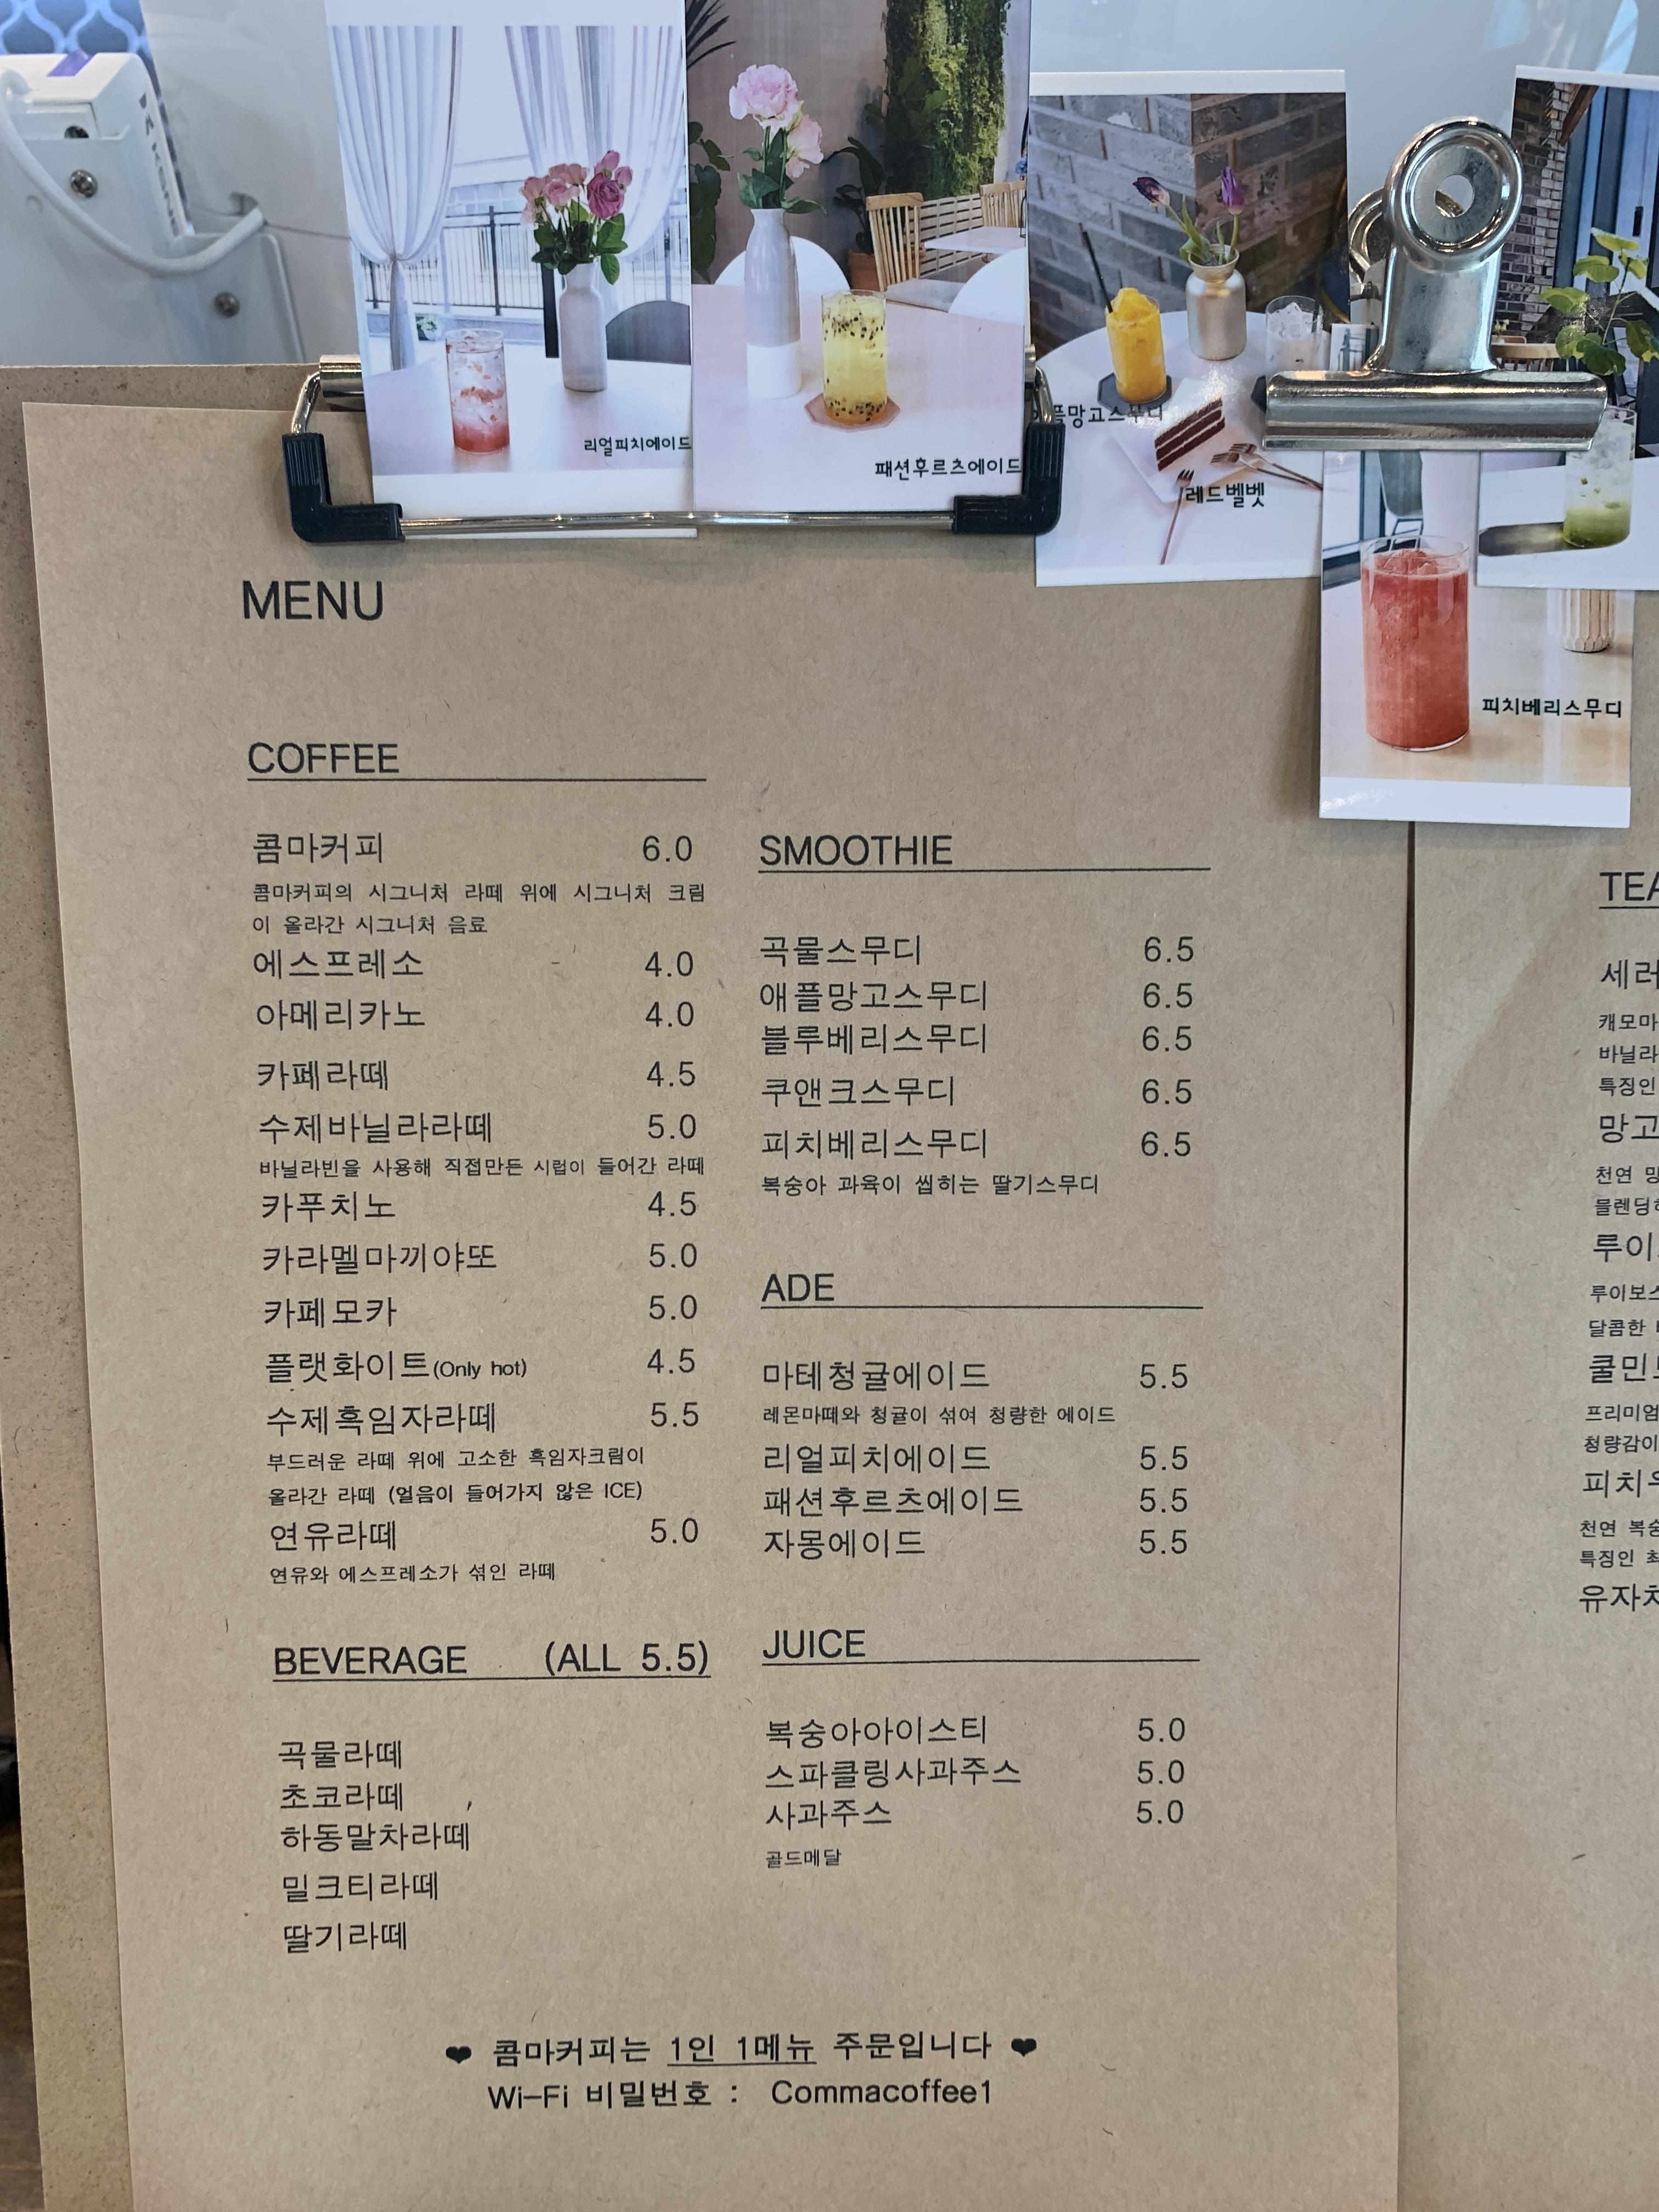 리얼피치에이드
패션후르츠에이드
플망고스무디
레드벨벳
피치베리스무디
MENU
COFFEE
콤마커피 6.0
콤마커피의 시그니처 라떼 위에 시그니처 크림
이 올라간 시그니처 음료
에스프레소 4.0
아메리카노 4.0
카페라떼 4.5
수제바닐라라떼 5.0
바닐라빈을 사용해 직접만든 시럽이 들어간 라떼
카푸치노 4.5
카라멜마끼야또 5.0
카페모카 5.0
플랫화이트(Only hot) 4.5
수제흑임자라떼 5.5
부드러운 라떼 위에 고소한 흑임자크림이
올라간 라떼 (얼음이 들어가지 않은 ICE)
연유라떼 5.0
연유와 에스프레소가 섞인 라떼
BEVERAGE (ALL 5.5)
곡물라떼
초코라떼
하동말차라떼
밀크티라떼
딸기라떼
SMOOTHIE
곡물스무디 6.5
애플망고스무디 6.5
블루베리스무디 6.5
쿠앤크스무디 6.5
피치베리스무디 6.5
복숭아 과육이 씹히는 딸기스무디
ADE
마테청귤에이드 5.5
레몬마떼와 청귤이 섞여 청량한 에이드
리얼피치에이드 5.5
패션후르츠에이드 5.5
자몽에이드 5.5
JUICE
복숭아아이스티 5.0
스파클링사과주스 5.0
사과주스 5.0
골드메달
❤ 콤마커피는 1인 1메뉴 주문입니다 ❤
Wi-Fi 비밀번호 : Commacoffee1
TEA
세러
캐모마
바닐라
특징인
망고
천연 망
블렌딩
루이
루이보스
달콤한
쿨민
프리미엄
청량감이
피치
천연 복숭
특징인 최
유자차